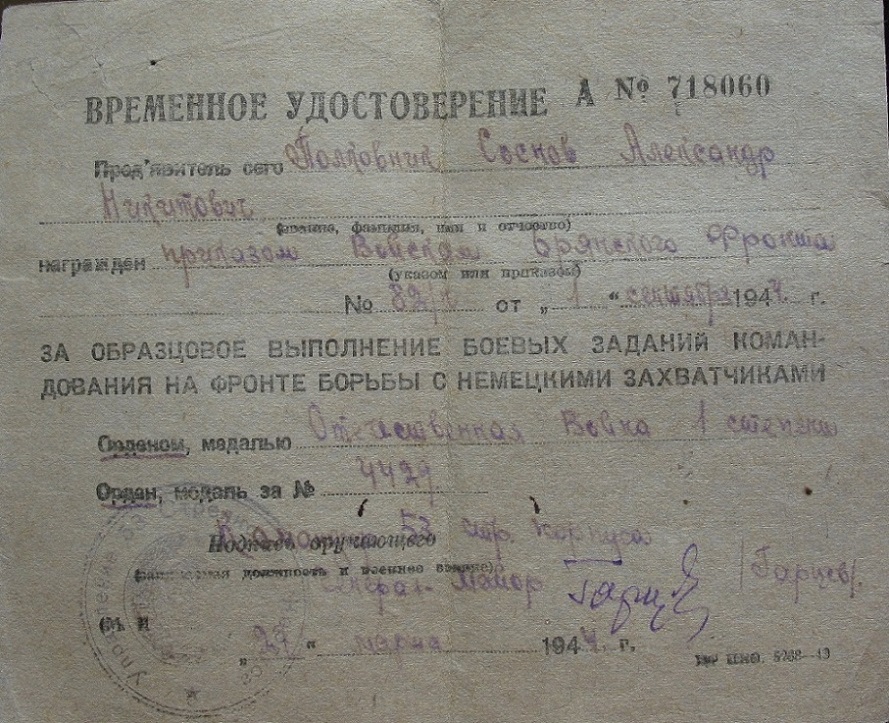 ВРЕМЕННОЕ УДОСТОВЕРЕНИЕ А № 718060
Пред'явитель сего Полковник Соснов Александр
Никитович
(звание, фамилия, имя и отчество)
награжден приказом Войскам Брянского Фронта
(указом или приказом)
№ 82/н от „1“ сентября 1944 г.
ЗА ОБРАЗЦОВОЕ ВЫПОЛНЕНИЕ БОЕВЫХ ЗАДАНИЙ КОМАН-
ДОВАНИЯ НА ФРОНТЕ БОРЬБЫ С НЕМЕЦКИМИ ЗАХВАТЧИКАМИ
Орденом, медалью Отечественная Война 1 степени
Орден, медаль за № 4429
53 стр. Корпуса
Подпись вручающего
должность и военное звание)
Генерал-Майор /Гарцев/.
М. П.
„29“ марта 1944 г.
5268—43